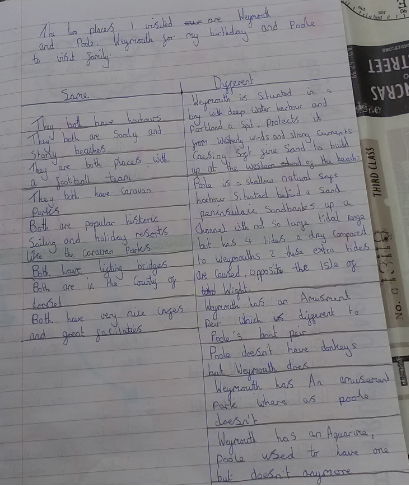 The two places I visited are Weymouth
and Poole. Weymouth for my birthday and Poole
to visit family
Same
They both have harbours
They both are Sandy and
beaches
They are both places with
a football team
They both have Caravan
Parks
Both are popular
Sailing and holiday resorts
like the Caravan Parks
Both have lifting bridges
Both are in the County of
Dorset
Both have very nice
and great facilities
Different
Weymouth is Situated in a
bay with deep water harbour and
Portland a Spit Protects it
from Westerly winds and strong currents
Causing Soft fine Sand to build
up at the end of the beach.
Poole is a shallow natural
harbour Situated behind a Sand
Sandbanks up a
Channel with not so large tidal range
but has 4 tides a day compared
to Weymouths 2 these extra tides
are Caused opposite the Isle of
Wight
Weymouth has an Amusement
Peir which is different to
Poole's boat peir
Poole doesn't have donkeys
but Weymouth does
Weymouth has An amusement
Park where as poole
doesn't
Weymouth has an Aquarium,
Poole used to have one
but doesn't anymore
STREET
ACRAS
THIRD CLASS
No.